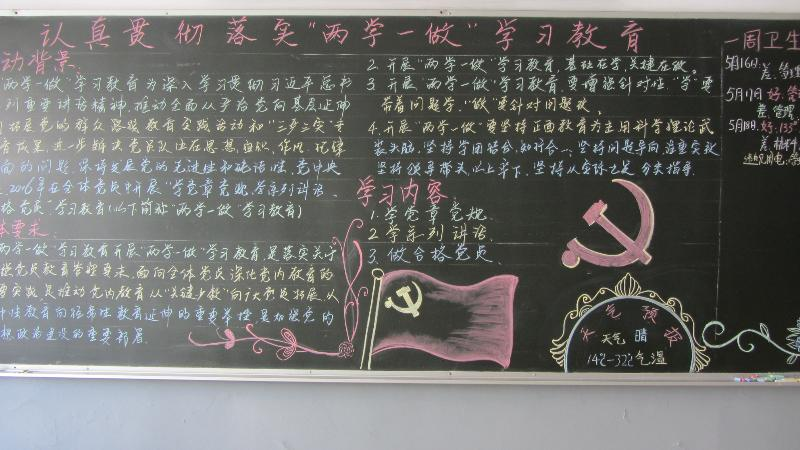 认真贯彻落实"两学一做"学习教育
动背景:
"两学一做"学习教育为深入学习贯彻习近平总书
列重要讲话精神,推动全面从严治党向基层延伸
拓展党的群众路线教育实践活动和"三严三实"专
育成果,进一步解决党员队伍在思想、组织、作风、纪律
面的问题,保持发展党的先进性和纯洁性,党中央
2016年在全体党员中开展"学党章党规、学系列讲话、
格党员"学习教育(以下简称"两学一做"学习教育)
体要求:
两学一做"学习教育开展"两学一做"学习教育,是落实关于
强党员教育管理要求,面向全体党员深化党内教育的
要实践,是推动党内教育从"关键少数"向广大党员拓展、从
中性教育向经常性教育延伸的重要举措,是加强党的
想政治建设的重要部署.
2.开展"两学一做"学习教育,基础在学,关键在做。
3.开展"两学一做"学习教育,要增强针对性,"学"要
带着问题学,"做"要针对问题改。
4.开展"两学一做"要坚持正面教育为主,用科学理论武
装头脑;坚持学用结合,知行合一;坚持问题导向,注重实效
坚持领导带头,以上率下;坚持从实际出发,分类指导。
学习内容
1.学党章党规.
2.学系列讲话.
3.做合格党员.
天气预报
天气 晴
气温
一周卫生
5月16日:
差:管理
5月17日 好:管
差:管理
5月18日 好:133
差:
违规用电: